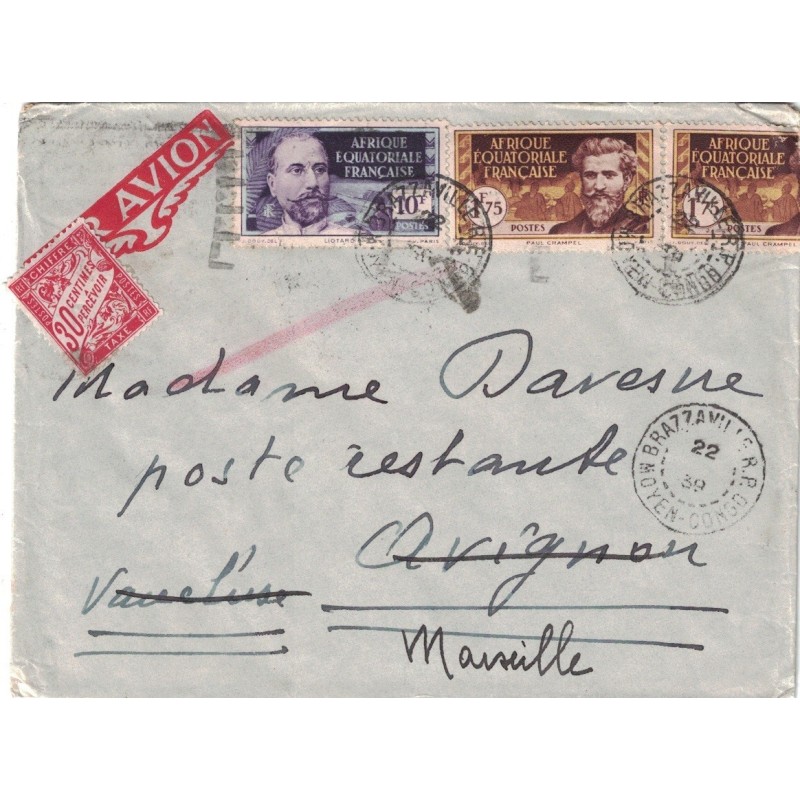 AVION
CHIFFRE
30 CENTIMES
PERCEVOIR
TAXE
AFRIQUE
ÉQUATORIALE
FRANÇAISE
10F
POSTES
LIOTARD
AFRIQUE
ÉQUATORIALE
FRANÇAISE
1F75
POSTES
PAUL CHAMPEL
AFRIQUE
ÉQUATORIALE
FRANÇAISE
1F75
POSTES
PAUL CHAMPEL
Madame Davesne
poste restante
Avignon
Vaucluse
Marseille
BRAZZAVILLE R.P.
22
39
MOYEN-CONGO